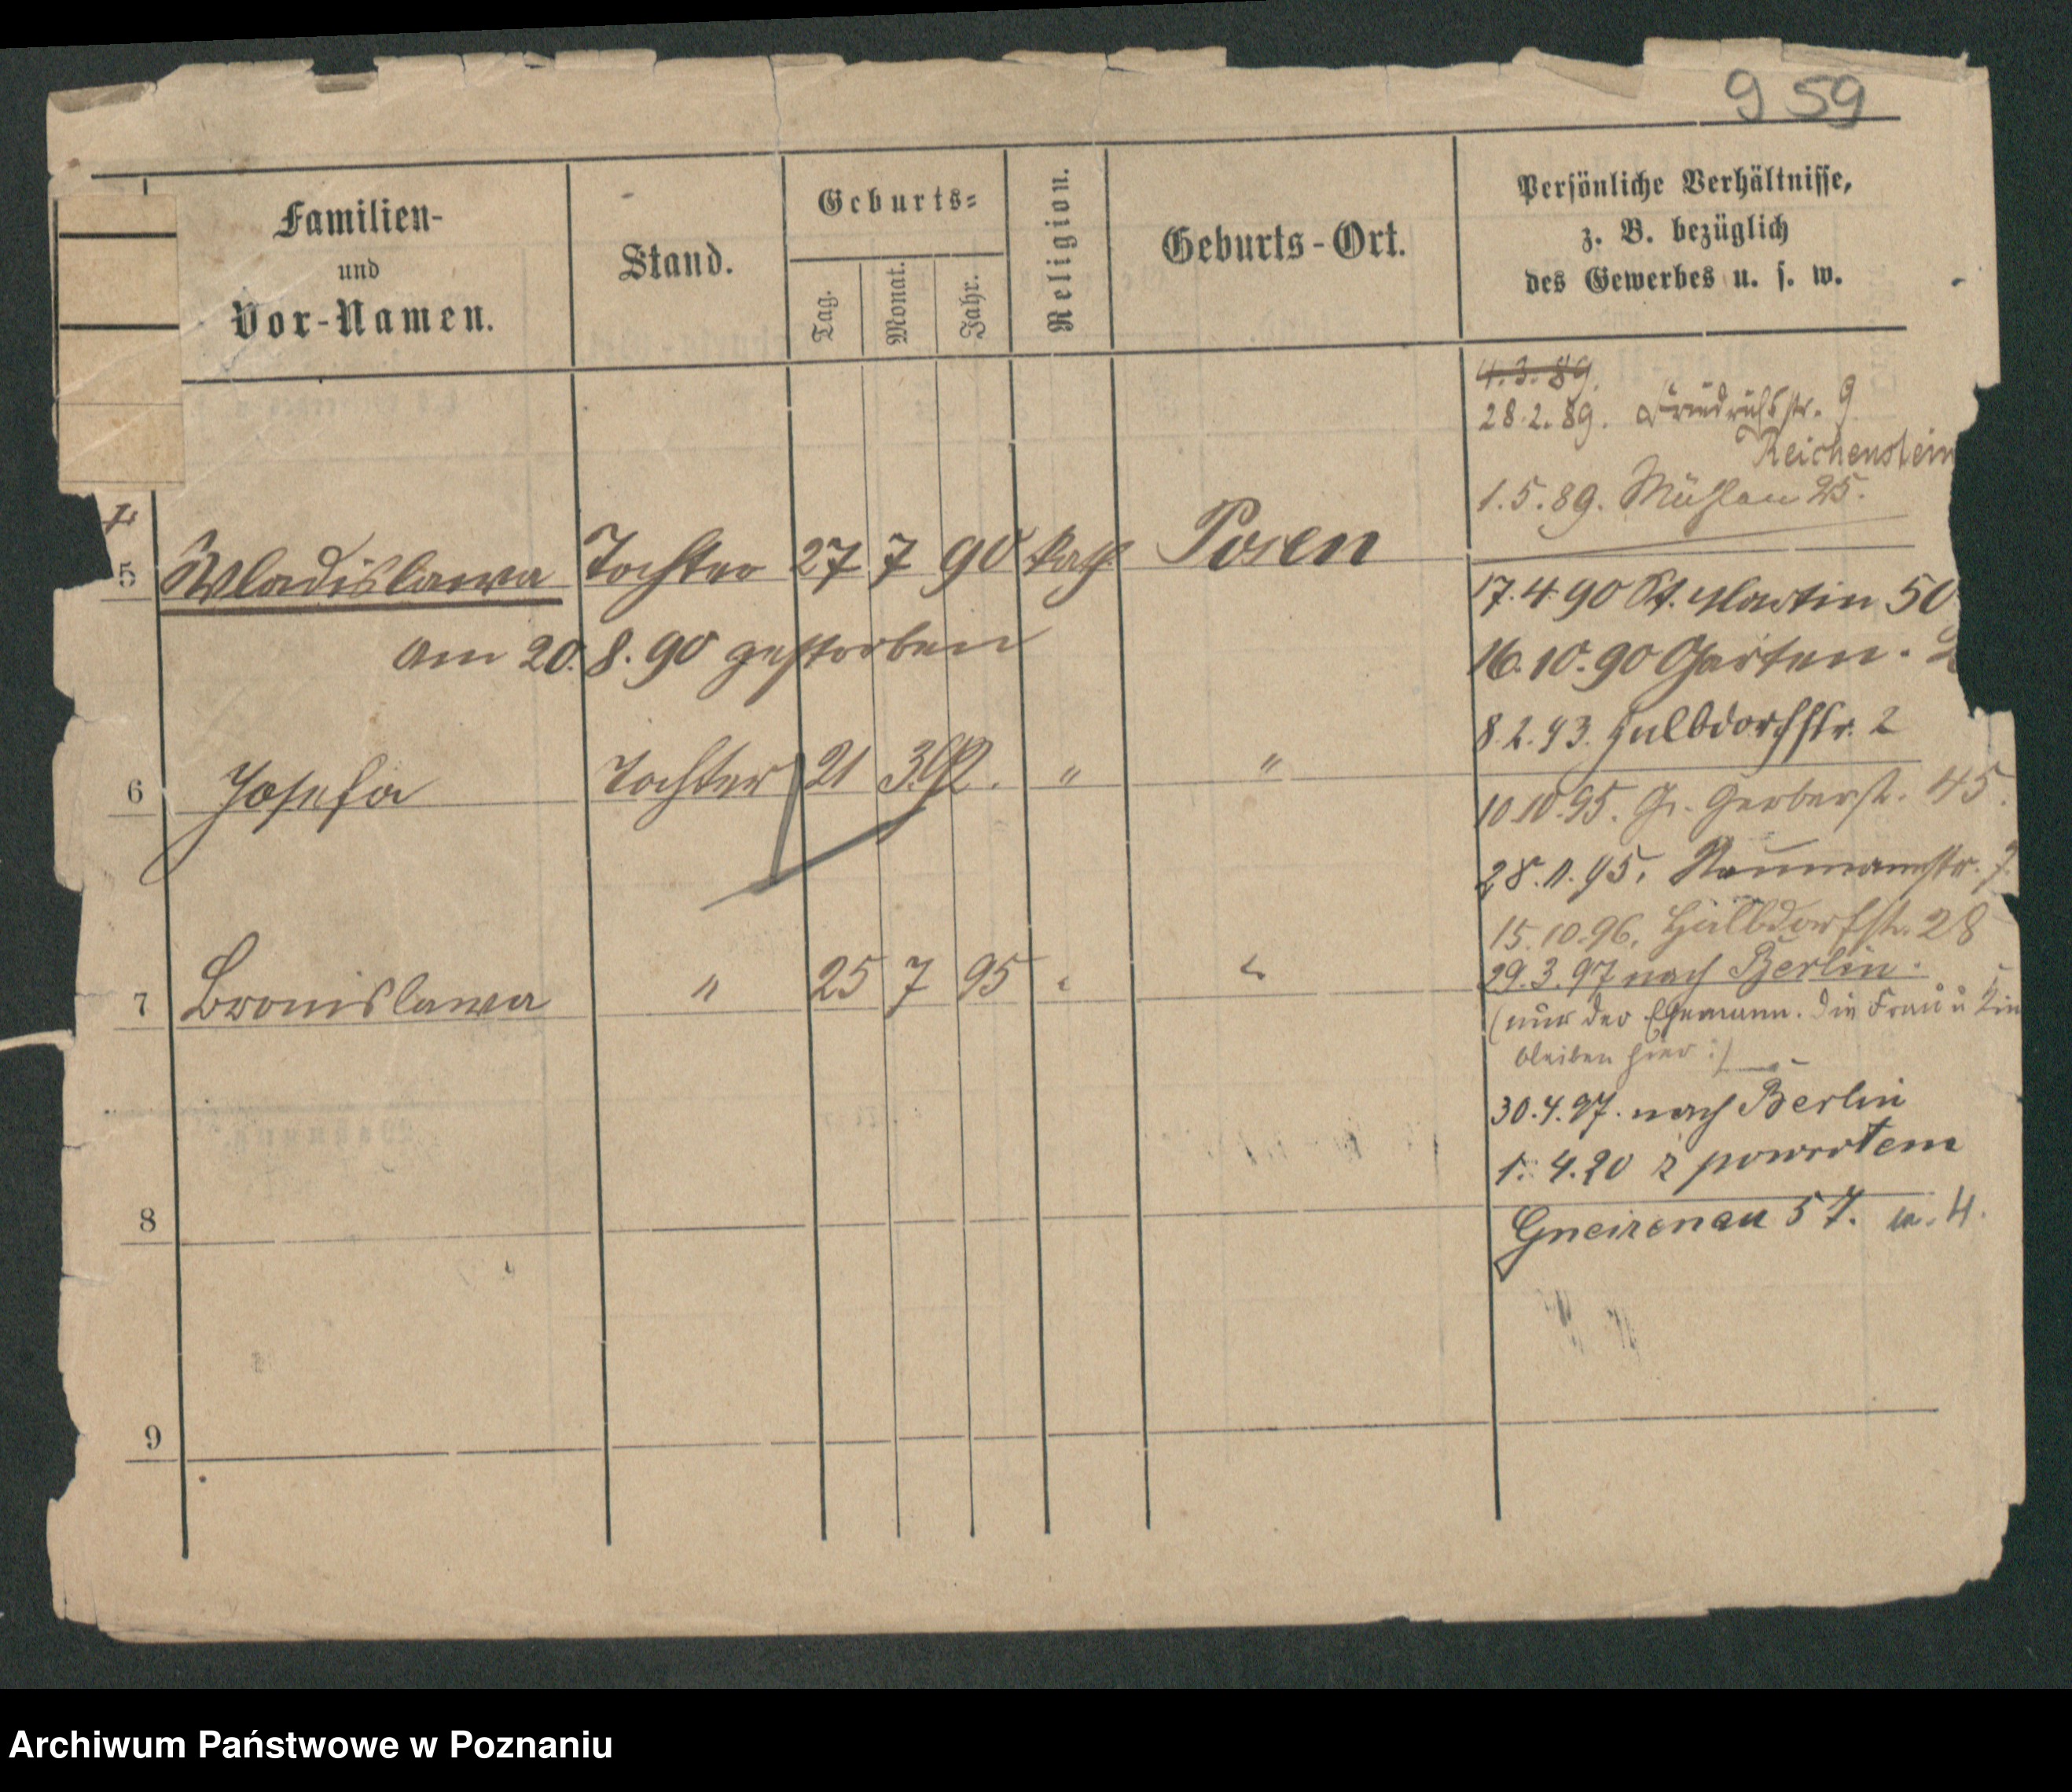 959
Familien-
und
Vor-Namen.
Stand.
Geburts-
Tag.
Monat.
Jahr.
Religion.
Geburts-Ort.
Persönliche Verhältnisse,
z. B. bezüglich
des Gewerbes u. s. w.
4.3.89.
28.2.89. Friedrichstr. 9
Reichenstein
1.5.89. Mühlen 25.
5 Wladislawa Tochter 27 7 90 kath Posen
17.4.90 St. Martin 50
am 20.8.90 gestorben
16.10.90 Garten.
8.2.93. Halbdorfstr. 2
6 Josefa Tochter 21 3 92. " "
10.10.95. Gr. Gerberst. 45.
28.11.95. Naumannstr.
15.10.96. Halbdorfstr. 28
7 Bronislawa " 25 7 95 " "
29.3.97 nach Berlin.
(nur der Ehemann. Die Frau u Kin
bleiben hier:)
30.4.97. nach Berlin
1.4.20 z powrotem
8
Gneisenau 57. m. 4.
9
Archiwum Państwowe w Poznaniu